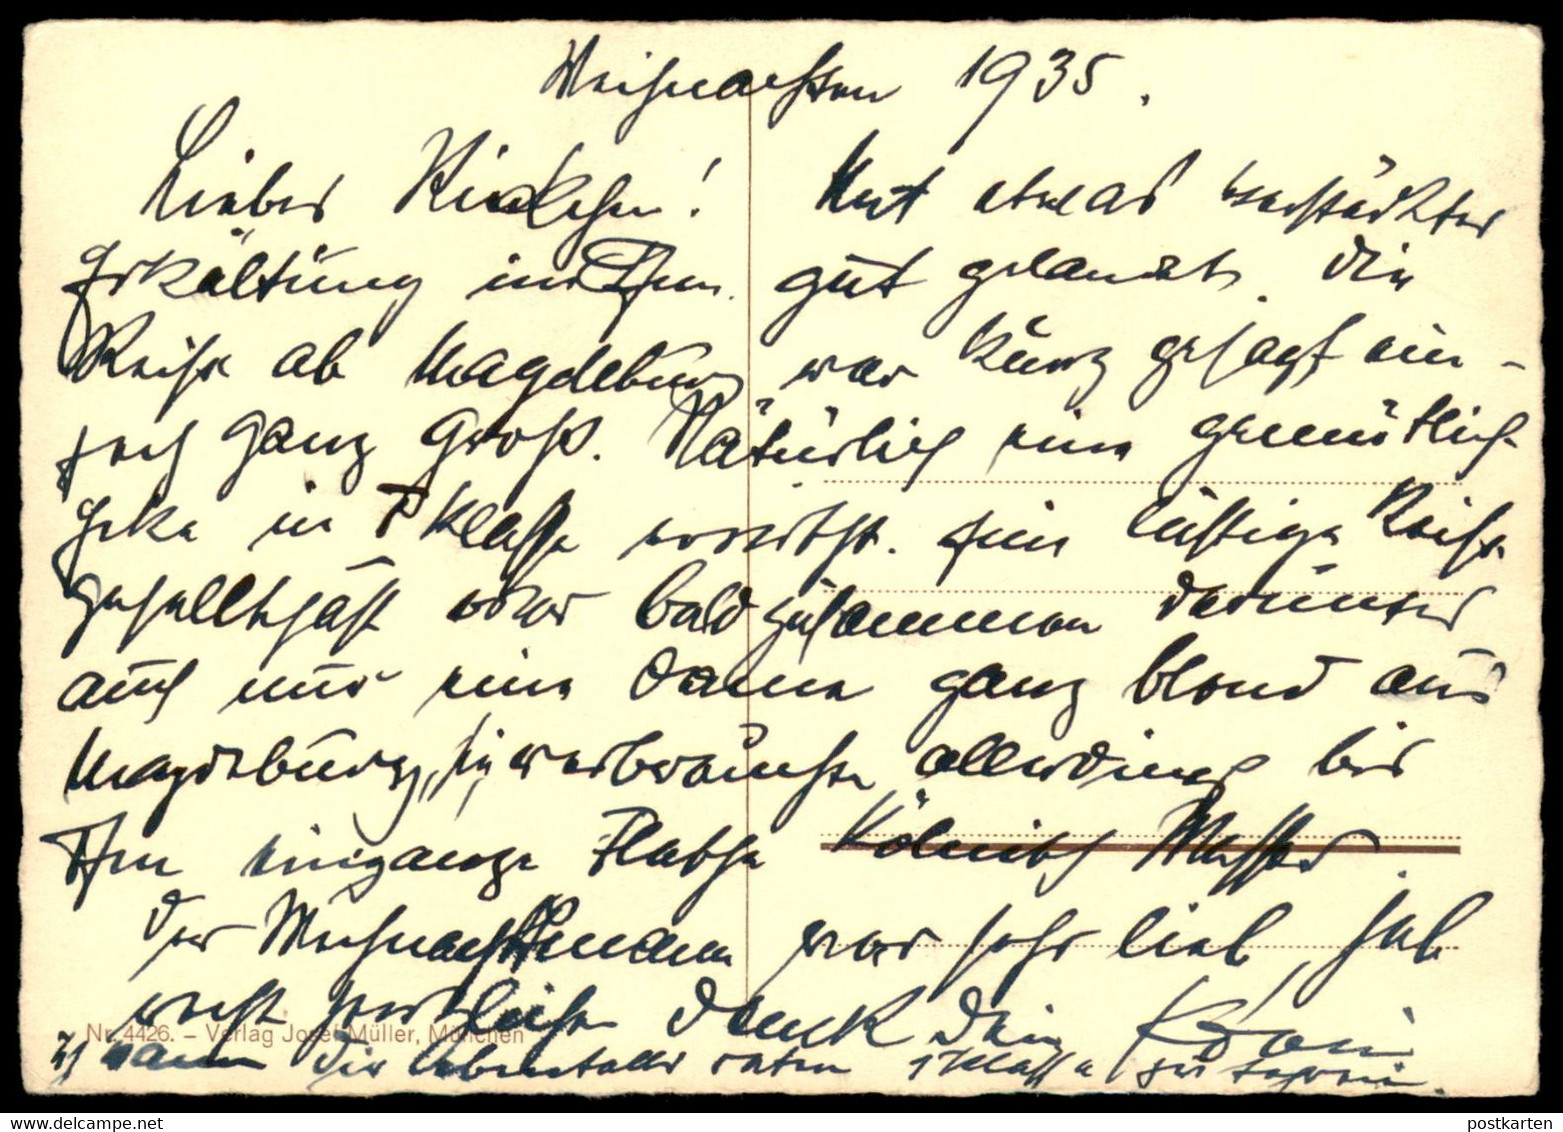 Weihnachten 1935.
Liebes Kindchen! Mit etwas verstärkter
Erkältung in gut gelandet. Die
Reise ab Magdeburg war kurz gesagt ein-
fach ganz groß. Natürlich eine gemütlich
Ecke in Klasse erwischt. Eine lustige Reise
gesellschaft war bald zusammen darunter
auch nur eine Dame ganz blond aus
Magdeburg, sie verbrauchte allerdings bis
eine ganze Flasche Kölnisch Wasser.
Der Weihnachtsmann war sehr lieb, hab
recht herzlichen Dank Dein
Nr. 4426. – Verlag Josef Müller, München
Ich kann Dir ebenfalls raten Klasse zu
postkarten